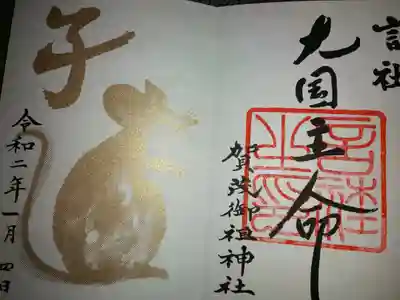 言社
大国主命
賀茂御祖神社
子
令和二年一月四日